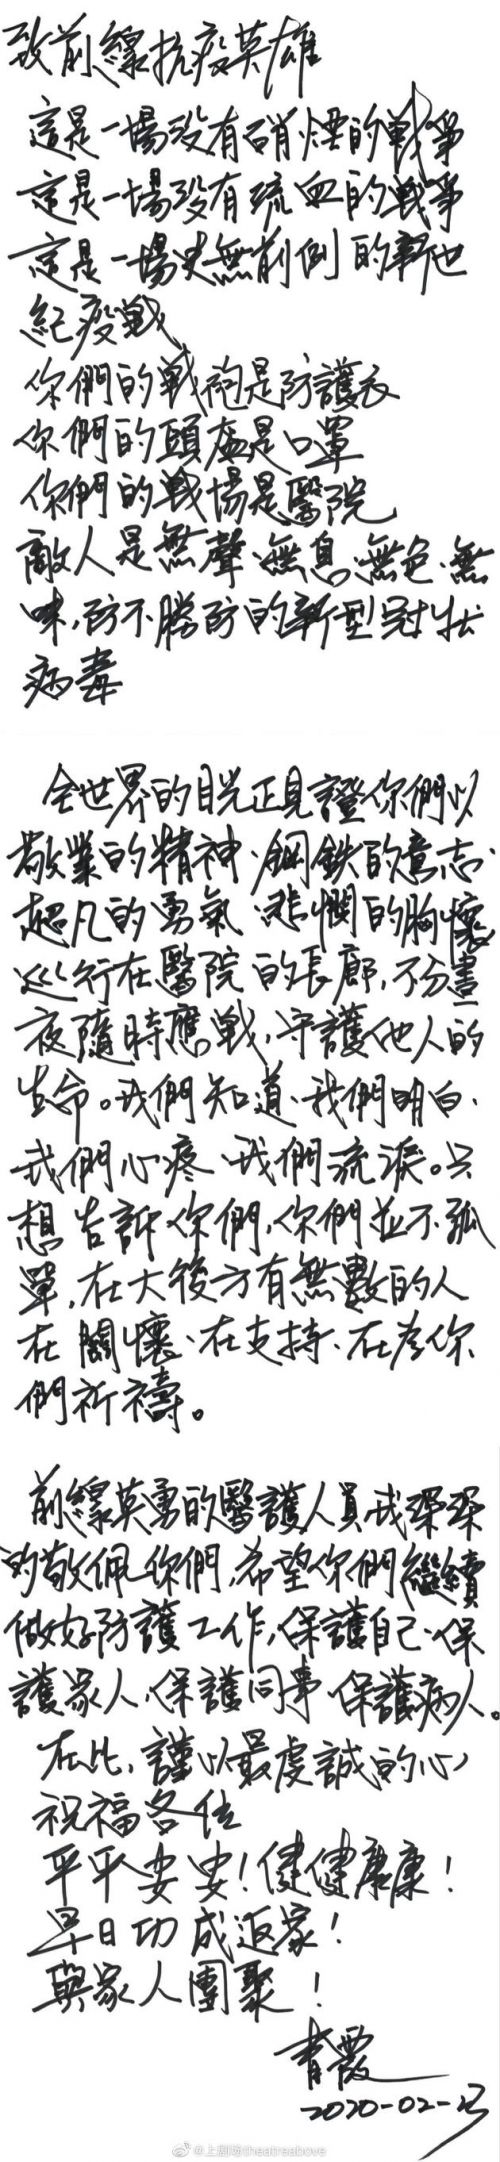 致前線抗疫英雄
這是一場沒有硝煙的戰爭
這是一場沒有流血的戰爭
這是一場史無前例的新世
紀疫戰
你們的戰袍是防護衣
你們的頭盔是口罩
你們的戰場是醫院
敵人是無聲、無息、無色、無
味,防不勝防的新型冠狀
病毒
全世界的目光正見證你們以
敬業的精神、鋼鉄的意志、
超凡的勇氣、悲憫的胸懷
巡行在醫院的長廊,不分晝
夜隨時應戰,守護他人的
生命。我們知道、我們明白、
我們心疼、我們流淚。只
想告訴你們,你們並不孤
單,在大後方有無數的人
在關懷、在支持、在為你
們祈禱。
前線英勇的醫護人員,我深深
的敬佩你們,希望你們繼續
做好防護工作,保護自己、保
護家人、保護同事、保護病人。
在此,謹以最虔誠的心
祝福各位
平平安安!健健康康!
早日功成返家!
與家人團聚!
青霞
2020-02-13
@上剧场theatreabove